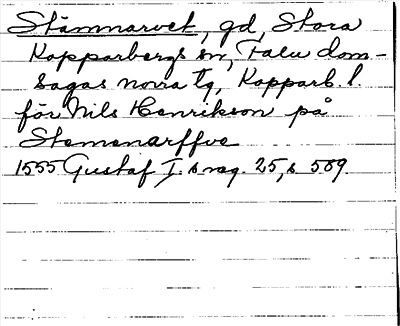 Stämnarvet, gd, Stora
Kopparbergs sn, Falu dom-
sagas norra tg, Kopparb. l.
för Nils Henrikson på
Stemenarffve
1555 Gustaf I. s reg. 25, s 589.